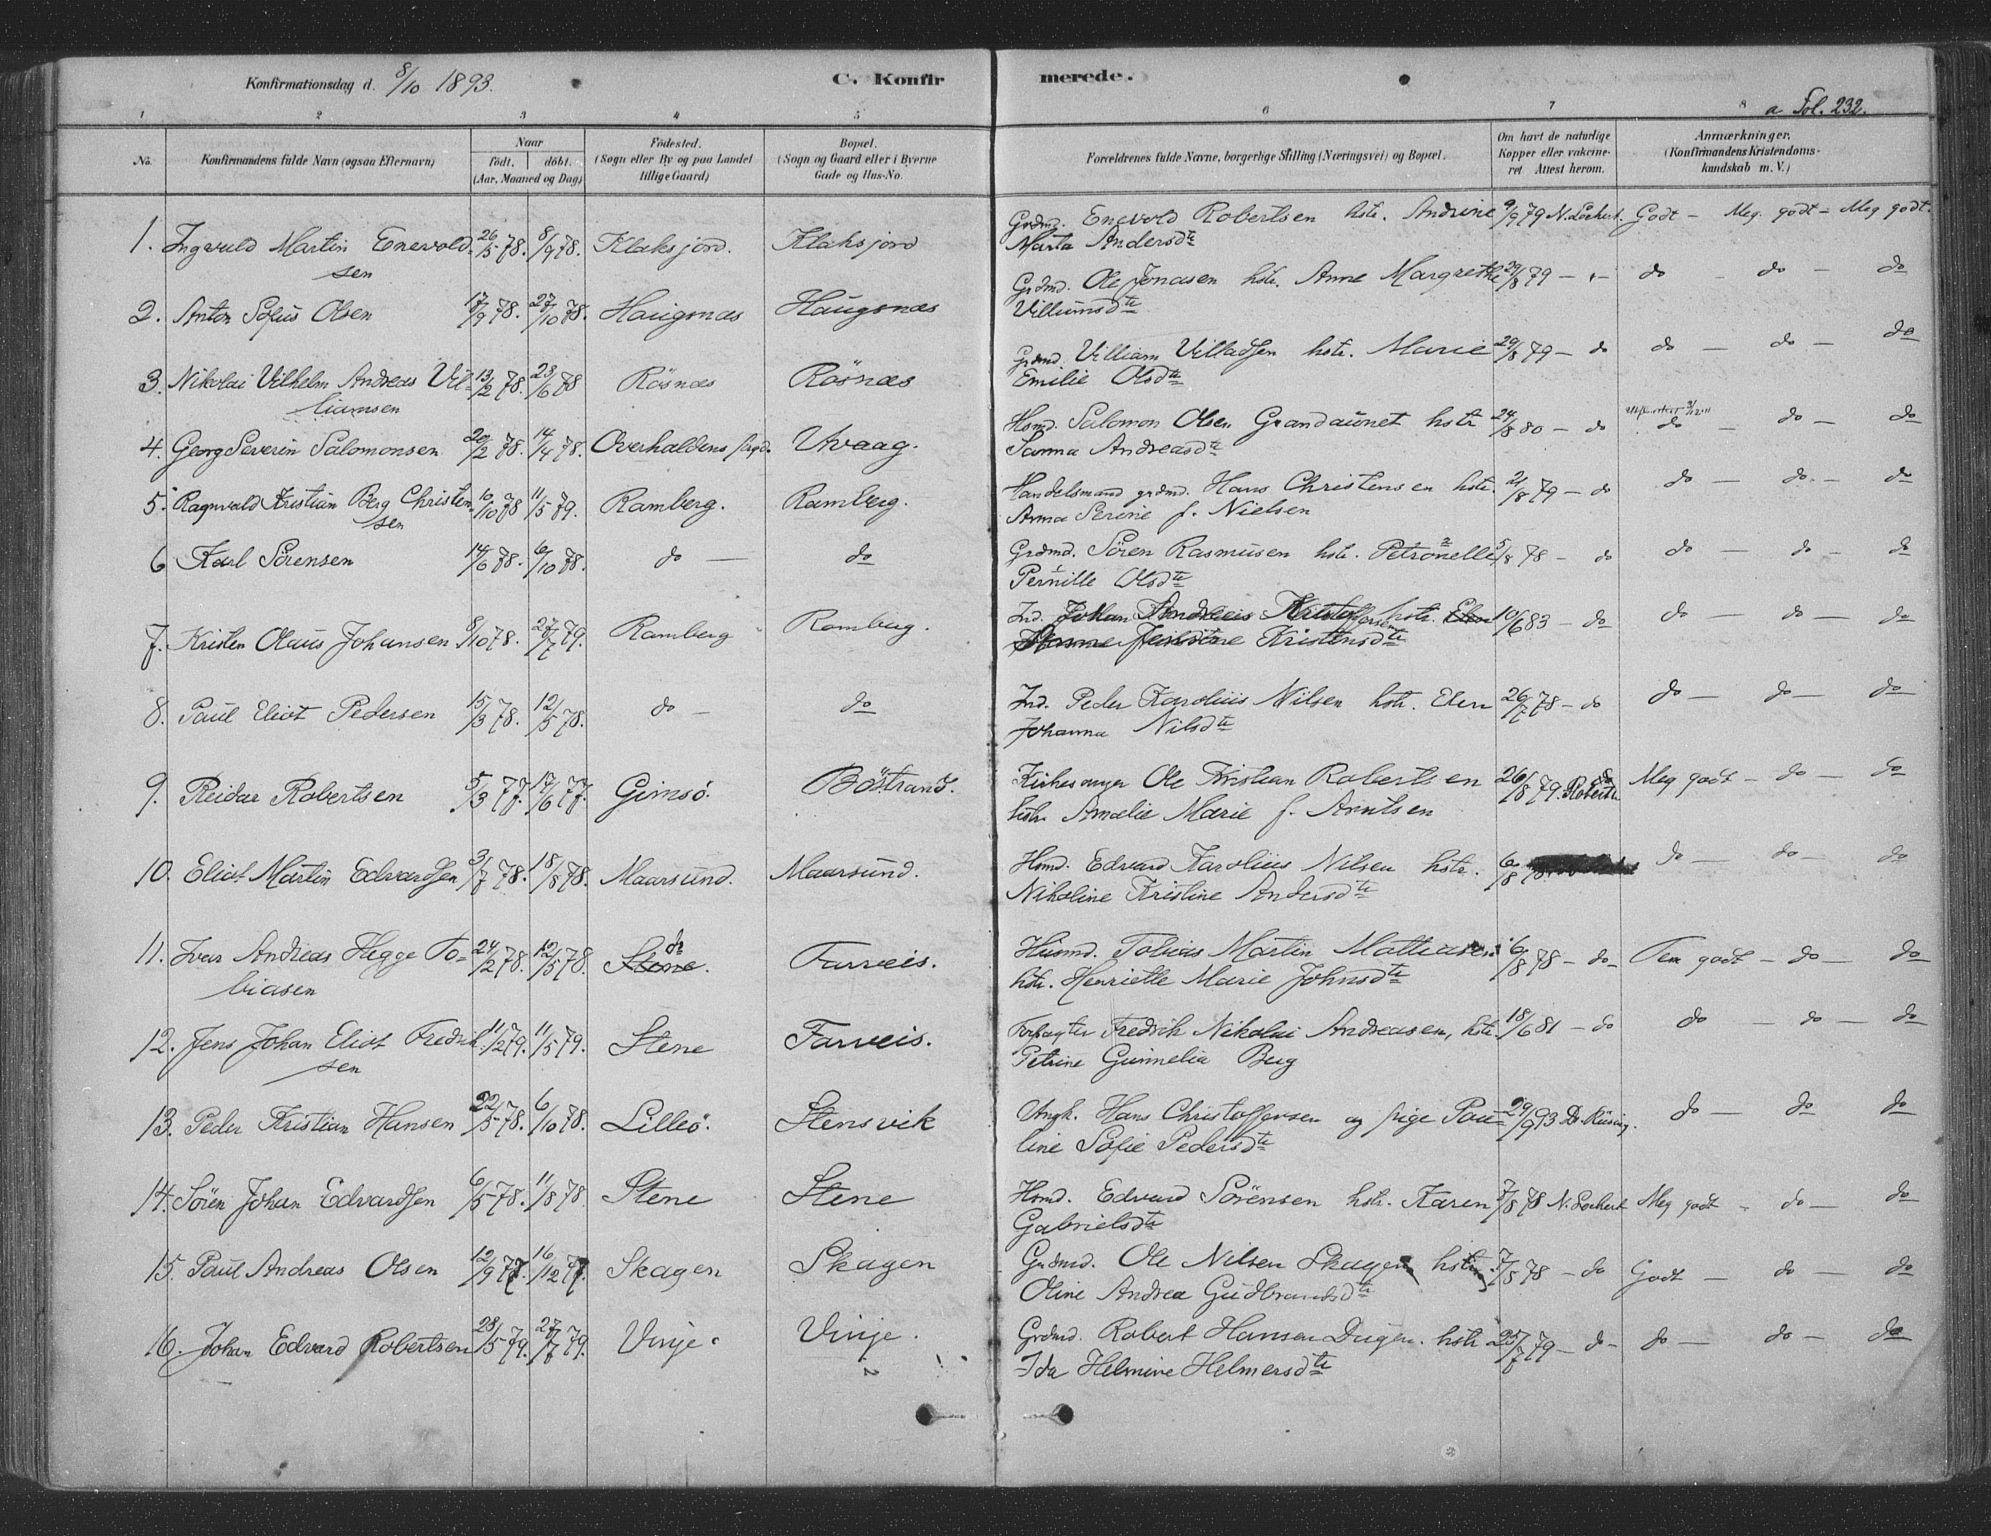 Konfirmationsdag d. 8/10 1893.
C. Konfirmerede.
a Fol. 232.
1 2 3 4 5 6 7 8
No.
Konfirmandens fulde Navn (ogsaa Efternavn)
Naar
født, døbt.
(Aar, Maaned og Dag)
Fødested.
(Sogn eller By og paa Landet
tillige Gaard)
Bopæl.
(Sogn og Gaard eller i Byerne
Gade og Hus-No.
Forældrenes fulde Navne, borgerlige Stilling (Næringsvei) og Bopæl.
Om havt de naturlige
Kopper eller vakcine-
ret Attest herom.
Anmærkninger.
(Konfirmandens Kristendoms-
kundskab m. V.)
1. Ingvald Martin Enevold- 26/5 78. 8/9 78. Klaksjord. Klaksjord Grdmd. Enevold Robertsen hstr. Andrine 9/9 79 N. Lockert. Godt – Meg. godt – Meg godt.
sen Marta Andersdtr
2. Anton Sofus Olsen 17/9 78. 27/10 78. Haugsnæs Haugsnæs Grdmd. Ole Jonasen hstr. Anne Margrethe 29/8 79 – " – do – do – do
Villumsdtr
3. Nikolai Vilhelm Andreas Vil- 13/2 78. 23/6 78 Rösnæs Rösnæs Grdmd. William Villadsen hstr. Marie 29/8 79 – do do – do – do
liamsen Emilie Olsdtr
4. Georg Severin Salomonsen 20/2 78. 14/4 78. Overhaldens prgd. Uvaag. Hsmd. Salomon Olsen Grandaunet hstr 24/8 80 – do do – do – do
Sanna Andreasdtr
5. Ragnvald Kristian Berg Christen 10/10 78 11/5 79. Ramberg. Ramberg. Handelsmand grdmd. Hans Christensen hstr. 21/8 79 – do do – do – do
sen Anna Serine f. Nielsen
6 Karl Sørensen 14/6 78. 6/10 78. do – do Grdmd. Søren Rasmusen hstr. Petronelle 5/8 78 – do do – do – do
Pernille Olsdtr
7. Kristen Olaus Johansen 9/10 78. 27/7 79. Ramberg Ramberg. Ind. Johan Andreas Kristoffersen hstr. 10/6 83 – do do – do – do
Kristensdtr
8. Paul Eliot Pedersen 15/3 78. 12/5 78. do – do Ind. Peder Karolius Nilsen hstr. Elen 26/7 78 – do do – do – do
Johanna Nilsdtr
9. Reidar Robertsen 5/3 77. 17/6 77. Gimsö. Böstrand. Kirkesanger Ole Kristian Robertsen 26/8 79. do Robertsen Meg godt – do – do
hstr Amalie Marie f. Arntsen
10. Eliot Martin Edvardsen 3/7 78. 18/8 78. Maarsund. Maarsund. Hsmd. Edvard Karolius Nilsen hstr. 6/8 78 do – do – do
Nikoline Kristine Andersdtr
11. Ivar Andreas Hegge To- 24/2 78. 12/5 78. Stene. Farveis. Husmd. Tobias Martin Matiasen 6/8 78 – do – Tem godt – do – do
biasen hstr. Henriette Marie Johnsdtr
12. Jens Johan Eliot Fredrik- 11/2 79. 11/5 79. Stene Farveis. Forpagter Fredrik Nikolai Andreasen, hstr. 18/6 81 – do do – do – do
sen Petrine Gunnelia Berg
13. Peder Kristian Hansen 22/5 78. 6/10 78. Lilleö. Stensvik Ungk. Hans Christoffersen og pige Pau- 29/9 93 Dr. Rüsing. do – do – do
line Sofie Pedersdtr
14. Sören Johan Edvardsen 6/5 78. 11/8 78 Stene Stene Hsmd. Edvard Sörensen hstr. Karen 7/8 78 N. Lockert Meg godt – do – do
Gabrielsdtr
15. Paul Andreas Olsen 12/9 77. 16/12 77. Skagen Skagen Grdmd. Ole Nilsen Skagen hstr. 7/5 78 – do Godt – do – do
Oline Andrea Gudbrandsdtr
16. Johan Edvard Robertsen 28/5 79. 27/7 79. Vinje. Vinje. Grdmd. Robert Hansen Dugen. hstr 25/7 79 – do – do – do – do
Ida Helmine Helmersdtr